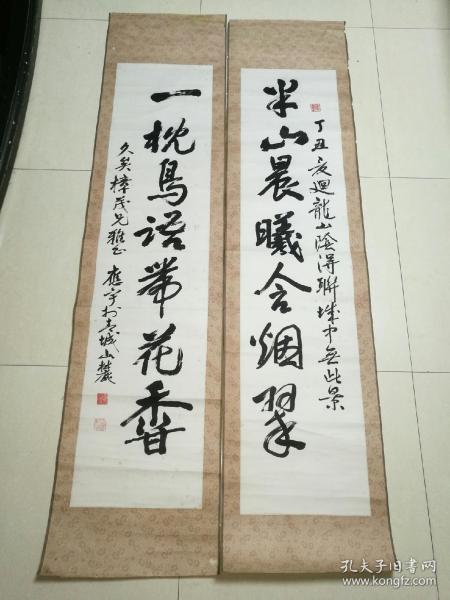 半山晨曦含烟翠
丁丑夜迴龍山蔭得聯城中無此景
一枕鳥语带花香
久矣樟茂兄雅正 應宇於青城山麓
孔夫子旧书网
www.kongfz.com